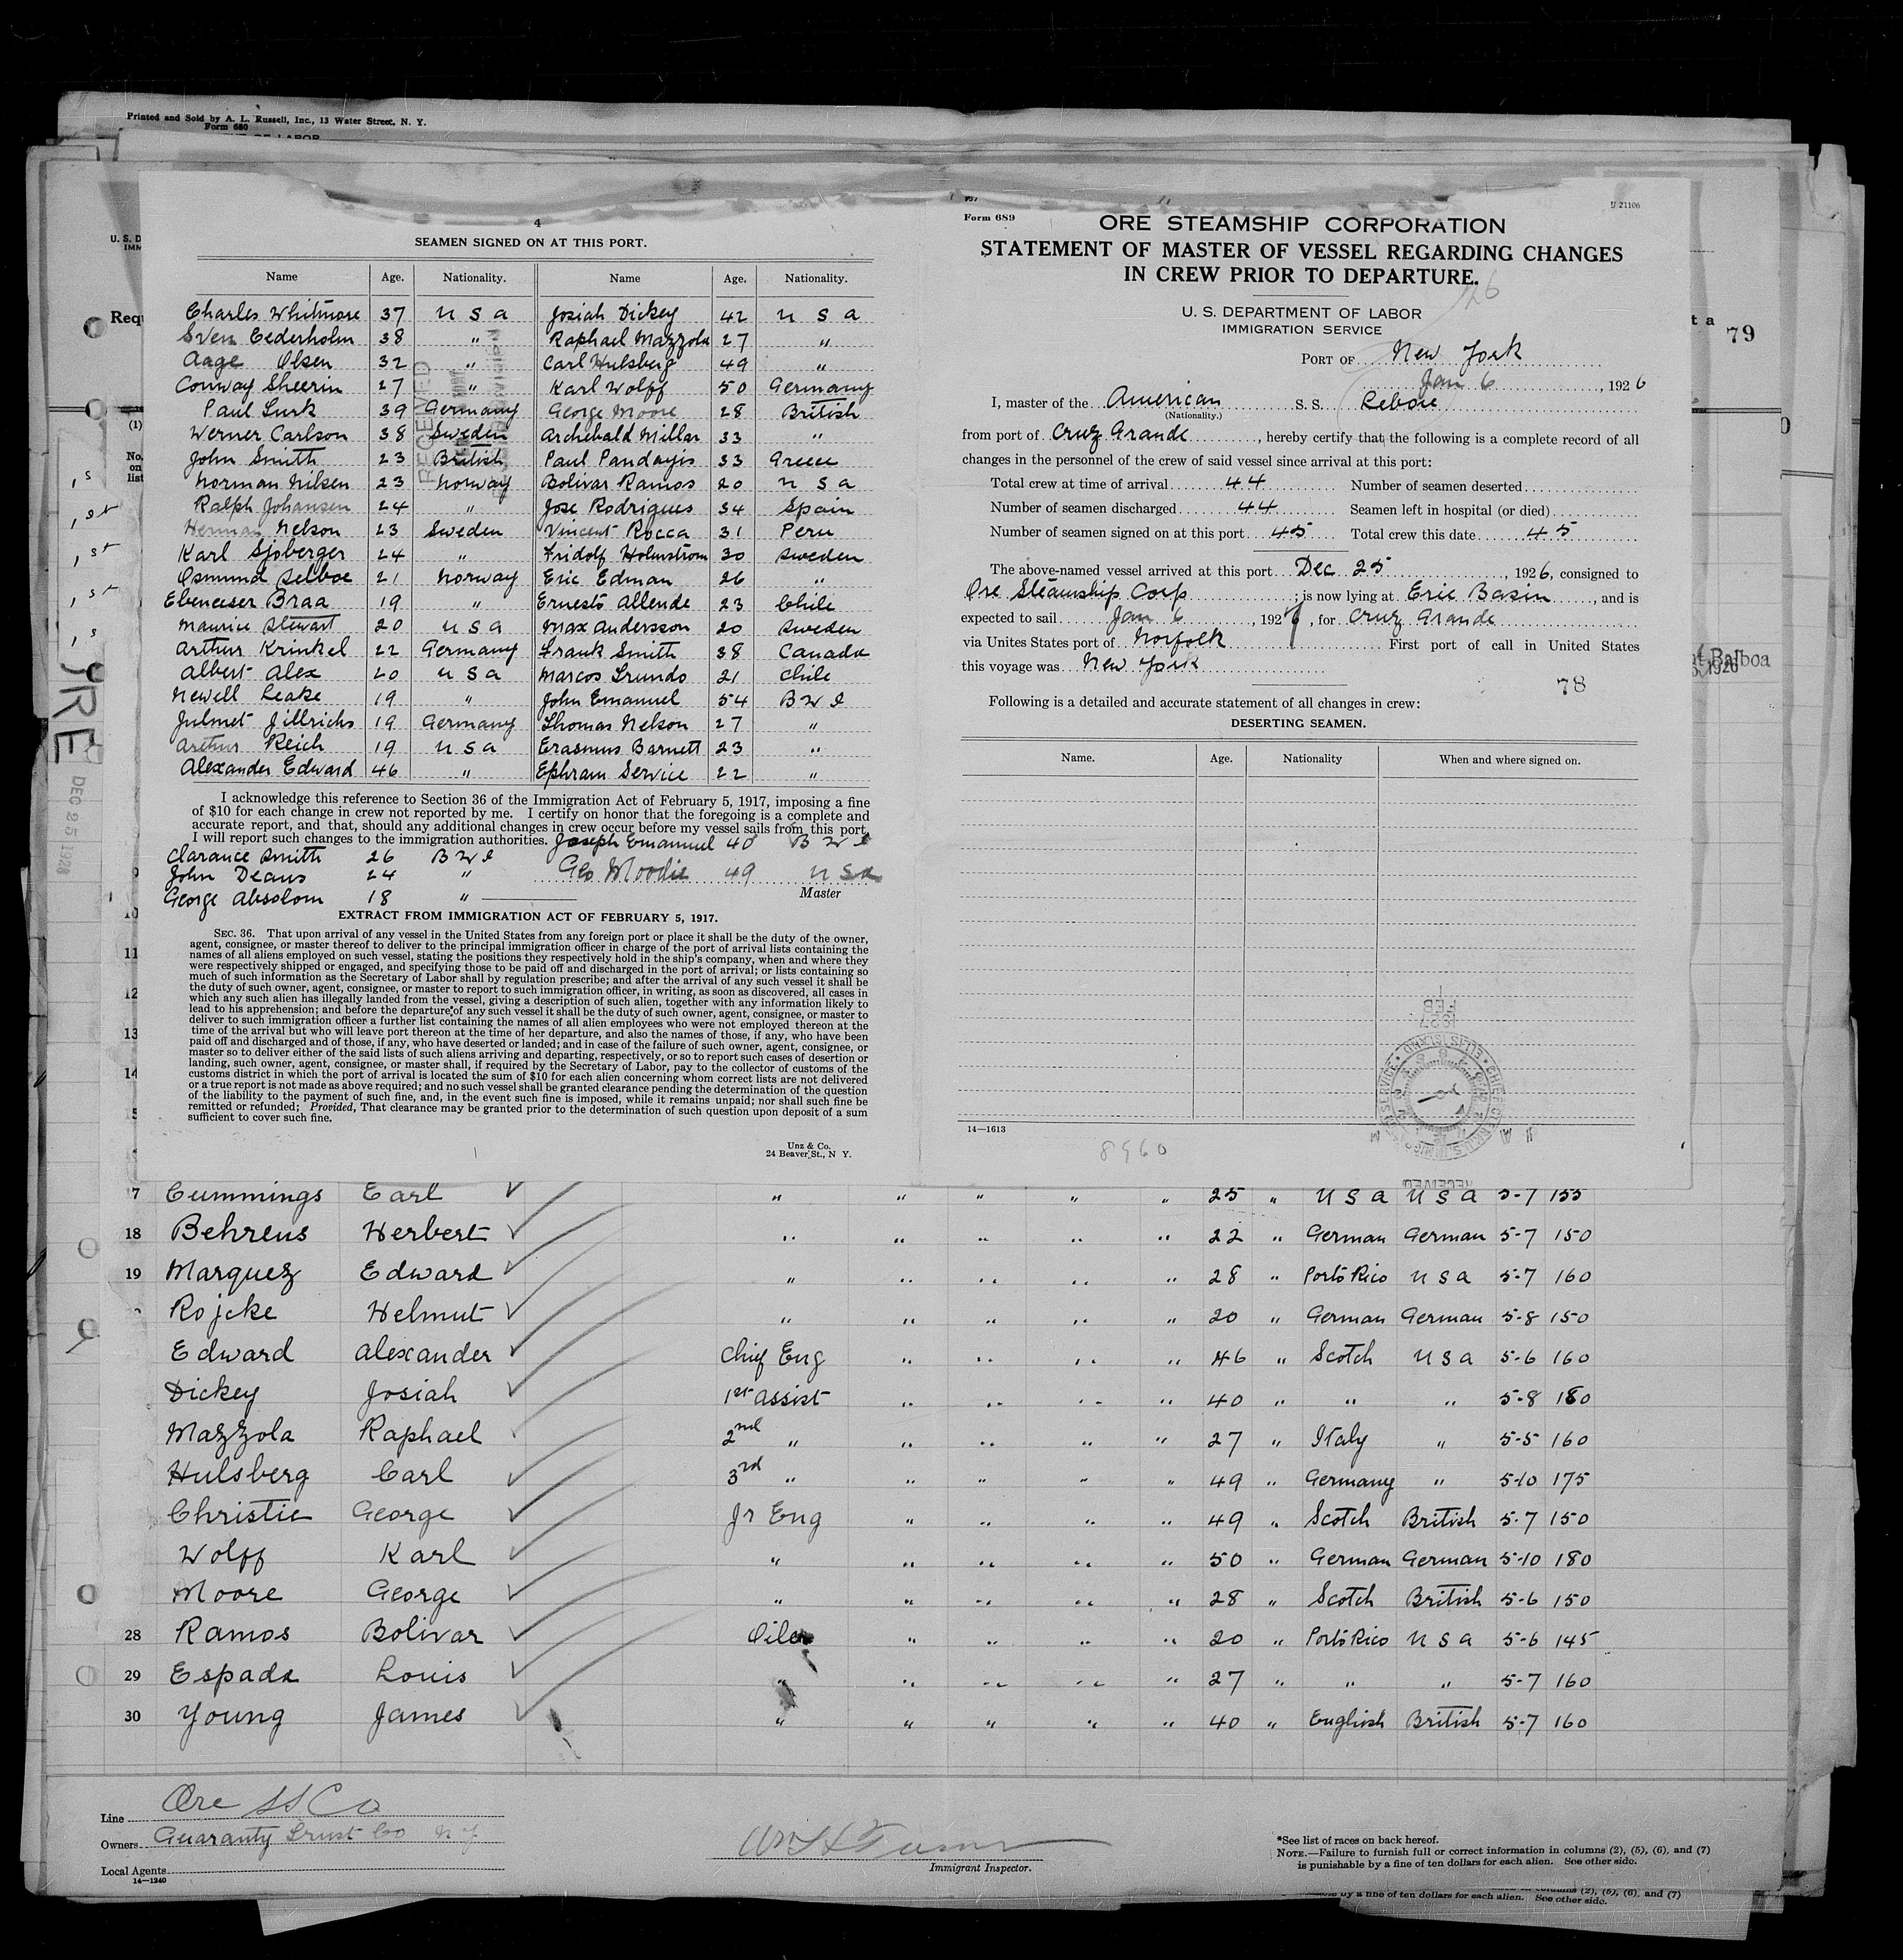 Printed and Sold by A. L. Russell, Inc., 13 Water Street, N. Y.
Form 680
4
SEAMEN SIGNED ON AT THIS PORT.
Name Age. Nationality. Name Age. Nationality.
Charles Whitmore 37 U S A Josiah Dickey 42 U S A
Sven Cederholm 38 " Raphael Mazzola 27 "
Aage Olsen 32 " Carl Hulsberg 49 "
Conway Sheerin 27 " Karl Wolff 50 Germany
Paul Lurk 39 Germany George Moore 28 British
Werner Carlson 38 Sweden Archebald Millar 33 "
John Smith 23 British Paul Pandayis 33 Greece
Norman Nilsen 23 Norway Bolivar Ramos 20 U S A
Ralph Johansen 24 " Jose Rodrigues 34 Spain
Herman Nelson 23 Sweden Vincent Rocca 31 Peru
Karl Sjoberger 24 " Fridolf Holmstrom 30 Sweden
Osmund Selboe 21 Norway Eric Edman 26 "
Ebeneeser Braa 19 " Ernesto Allende 23 Chile
Maurice Stewart 20 U S A Max Andersson 20 Sweden
Arthur Krinkel 22 Germany Frank Smith 38 Canada
Albert Alex 20 U S A Marcos Trundo 21 Chile
Newell Leake 19 " John Emanuel 54 B W I
Julmet Jillrichs 19 Germany Thomas Nelson 27 "
Arthur Reich 19 U S A Erasmus Barnett 23 "
Alexander Edward 46 " Ephram Service 22 "
I acknowledge this reference to Section 36 of the Immigration Act of February 5, 1917, imposing a fine
of $10 for each change in crew not reported by me. I certify on honor that the foregoing is a complete and
accurate report, and that, should any additional changes in crew occur before my vessel sails from this port,
I will report such changes to the immigration authorities. Joseph Emanuel 40 B W I
Clarance Smith 26 B W I
John Deans 24 " Geo Moodie 49 U S A
Master
George Absolom 18 "
EXTRACT FROM IMMIGRATION ACT OF FEBRUARY 5, 1917.
SEC. 36. That upon arrival of any vessel in the United States from any foreign port or place it shall be the duty of the owner,
agent, consignee, or master thereof to deliver to the principal immigration officer in charge of the port of arrival lists containing the
names of all aliens employed on such vessel, stating the positions they respectively hold in the ship's company, when and where they
were respectively shipped or engaged, and specifying those to be paid off and discharged in the port of arrival; or lists containing so
much of such information as the Secretary of Labor shall by regulation prescribe; and after the arrival of any such vessel it shall be
the duty of such owner, agent, consignee, or master to report to such immigration officer, in writing, as soon as discovered, all cases in
which any such alien has illegally landed from the vessel, giving a description of such alien, together with any information likely to
lead to his apprehension; and before the departure of any such vessel it shall be the duty of such owner, agent, consignee, or master to
deliver to such immigration officer a further list containing the names of all alien employees who were not employed thereon at the
time of the arrival but who will leave port thereon at the time of her departure, and also the names of those, if any, who have been
paid off and discharged and of those, if any, who have deserted or landed; and in case of the failure of such owner, agent, consignee, or
master so to deliver either of the said lists of such aliens arriving and departing, respectively, or so to report such cases of desertion or
landing, such owner, agent, consignee, or master shall, if required by the Secretary of Labor, pay to the collector of customs of the
customs district in which the port of arrival is located the sum of $10 for each alien concerning whom correct lists are not delivered
or a true report is not made as above required; and no such vessel shall be granted clearance pending the determination of the question
of the liability to the payment of such fine, and, in the event such fine is imposed, while it remains unpaid; nor shall such fine be
remitted or refunded; Provided, That clearance may be granted prior to the determination of such question upon deposit of a sum
sufficient to cover such fine.
Unz & Co.
24 Beaver St., N Y.
Form 689
U 21106
ORE STEAMSHIP CORPORATION
STATEMENT OF MASTER OF VESSEL REGARDING CHANGES
IN CREW PRIOR TO DEPARTURE.
U. S. DEPARTMENT OF LABOR
IMMIGRATION SERVICE
PORT OF New York
Jan 6, 1926
I, master of the American S. S. Rebore
(Nationality.)
from port of Cruz Grande, hereby certify that the following is a complete record of all
changes in the personnel of the crew of said vessel since arrival at this port:
Total crew at time of arrival 44 Number of seamen deserted
Number of seamen discharged 44 Seamen left in hospital (or died)
Number of seamen signed on at this port 45 Total crew this date 45
The above-named vessel arrived at this port Dec 25, 1926, consigned to
Ore Steamship Corp; is now lying at Erie Basin, and is
expected to sail Jan 6, 1927, for Cruz Grande
via Unites States port of Norfolk First port of call in United States
this voyage was New York
78
Following is a detailed and accurate statement of all changes in crew:
DESERTING SEAMEN.
Name. Age. Nationality When and where signed on.
14—1613
8960
79
Balboa
RECEIVED
DEC 25 1926
7 Cummings Earl " " " " " 25 " U S A U S A 5-7 155
18 Behrens Herbert " " " " " 22 " German German 5-7 150
19 Marquez Edward " " " " " 28 " Porto Rico U S A 5-7 160
Rojcke Helmut " " " " " 20 " German German 5-8 150
Edward Alexander Chief Eng " " " " 46 " Scotch U S A 5-6 160
Dickey Josiah 1st assist " " " " 40 " " " 5-8 180
Mazzola Raphael 2nd " " " " " 27 " Italy " 5-5 160
Hulsberg Carl 3rd " " " " " 49 " Germany " 5-10 175
Christie George Jr Eng " " " " 49 " Scotch British 5-7 150
Wolff Karl " " " " " 50 " German German 5-10 180
Moore George " " " " " 28 " Scotch British 5-6 150
28 Ramos Bolivar Oiler " " " " 20 " Porto Rico U S A 5-6 145
29 Espada Louis " " " " " 27 " " " 5-7 160
30 Young James " " " " " 40 " English British 5-7 160
Line Ore SS Co
Owners Guaranty Trust Co N Y
Local Agents
14—1240
Immigrant Inspector.
*See list of races on back hereof.
NOTE.—Failure to furnish full or correct information in columns (2), (5), (6), and (7)
is punishable by a fine of ten dollars for each alien. See other side.
by a fine of ten dollars for each alien. See other side.